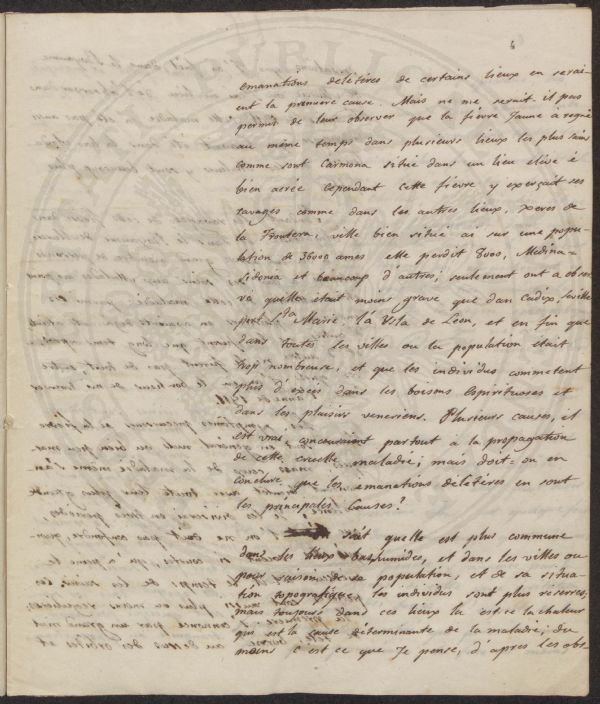 4
emanations délétères de certains lieux en serai-
ent la première cause. Mais ne me serait il pas
permis de leur observer que la fièvre Jaune a regné
au même temps dans plusieurs lieux les plus sains
comme sont Carmona situé dans un lieu elévé è
bien aerée cependant cette fièvre y exerçait ses
ravages comme dans les autres lieux, Xeres de
la Frontera, ville bien situé ai sur une popu-
lation de 36000 ames elle perdit 8000, Medina-
Sidonea et beaucoup d'autres; seulement ont a obser-
vá quelle était moins grave que dan Cadix, Séville
port Sta Marie la Ysla de Leon, et en fin que
dans toutes les villes ou la population était
trop nombreuse, et que les individus commetent
plus d'excés dans les boisons Espirituoses et
dans les plaisirs veneriens. Plusieurs causes, il
est vrai concouraient partout à la propagation
de cette cruelle maladié; mais doit-on en
conclure que les emanations délétéres en sont
les principales causes?
soit quelle est plus commune
dans les lieux bas, humides, et dans les villes ou
pour raison de sa population, et de sa situa-
tion topografique les individus sont plus reserrés;
mais toujours dans ces lieux la est-ce la chaleur
qui est la cause determinante de la maladie; du
moins c'est ce que Je pense, d'apres les obs